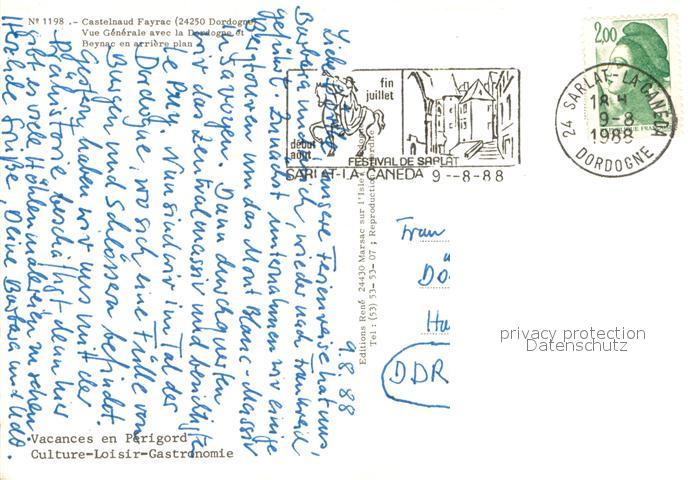 Nº 1198 .- Castelnaud Fayrac (24250 Dordogne
Vue Générale avec la Dordogne et
Beynac en arrière plan
fin
juillet
début
août
FESTIVAL DE SARLAT
SARLAT-LA-CANEDA 9--8-88
2,00
24 SARLAT-LA-CANEDA
18 H
9-8
1988
DORDOGNE
9.8.88
unsere Ferienreise hat uns,
Barbara und mich, wieder nach Frankreich
geführt. Zunächst unternahmen wir einige
Bergtouren um das Mont Blanc-Massiv
in Savoyen. Dann durchquerten
wir das Zentralmassiv und besichtigten
Le Puy. Nun sind wir im Tal der
Dordogne, wo sich eine Fülle von
Burgen und Schlössern befindet.
Gestern haben wir uns mit der
Prähistorie beschäftigt, denn hier
gibt es viele Höhlenmalereien zu sehen.
Herzliche Grüße, Deine Barbara und Udo.
Editions René 24430 Marsac sur l'Isle
Tel: (53) 53-53-07 ; Reproduction
Frau
DDR
privacy protection
Datenschutz
Vacances en Périgord
Culture-Loisir-Gastronomie